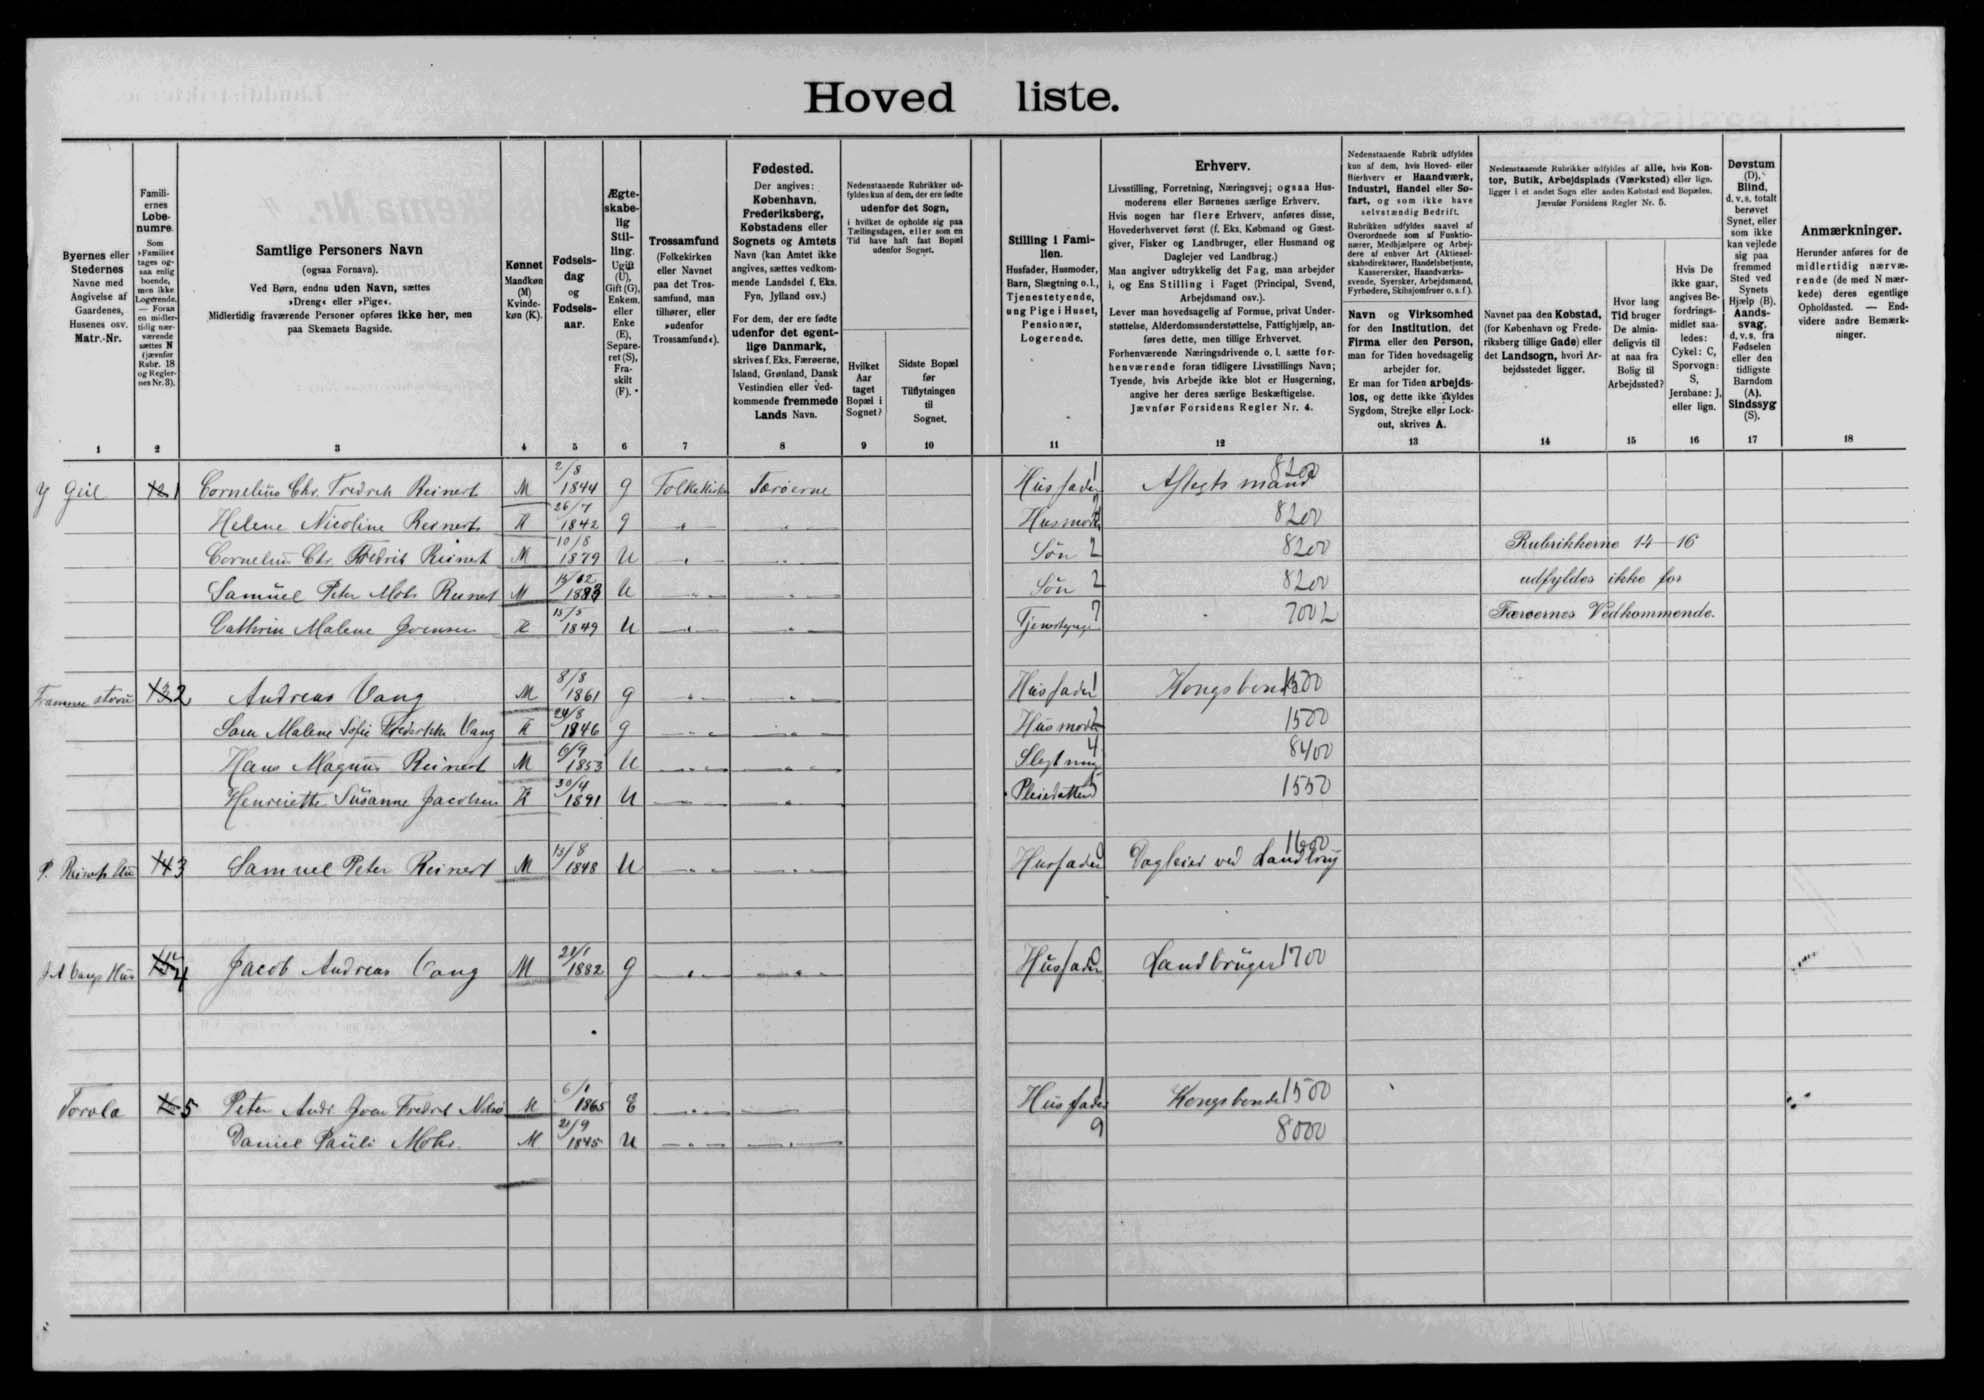 Hoved liste.
Byernes eller Stedernes Navne med Angivelse af Gaardenes, Husenes osv. Matr.-Nr.
Famili-ernes Løbe-numre.
Som »Familie« tages og-saa enlig boende, men ikke Logerende. — Foran en midler-tidig nær-værende sættes N (jævnfør Rubr. 18 og Regler-nes Nr. 3).
Samtlige Personers Navn
(ogsaa Fornavn).
Ved Børn, endnu uden Navn, sættes »Dreng« eller »Pige«.
Midlertidig fraværende Personer opføres ikke her, men paa Skemaets Bagside.
Kønnet Mandkøn (M) Kvinde-køn (K).
Fødsels-dag og Fødsels-aar.
Ægte-skabe-lig Stil-ling. Ugift (U), Gift (G), Enkem. eller Enke (E), Separe-ret (S), Fra-skilt (F).
Trossamfund (Folkekirken eller Navnet paa det Tros-samfund, man tilhører, eller »udenfor Trossamfund«).
Fødested.
Der angives: København, Frederiksberg, Købstadens eller Sognets og Amtets Navn (kan Amtet ikke angives, sættes vedkom-mende Landsdel f. Eks. Fyn, Jylland osv.)
For dem, der ere fødte udenfor det egent-lige Danmark, skrives f. Eks. Færøerne, Island, Grønland, Dansk Vestindien eller ved-kommende fremmede Lands Navn.
Nedenstaaende Rubrikker ud-fyldes kun af dem, der ere fødte udenfor det Sogn, i hvilket de opholde sig paa Tællingsdagen, eller som en Tid have haft fast Bopæl udenfor Sognet.
Hvilket Aar taget Bopæl i Sognet?
Sidste Bopæl før Tilflytningen til Sognet.
Stilling i Fami-lien.
Husfader, Husmoder, Barn, Slægtning o.l., Tjenestetyende, ung Pige i Huset, Pensionær, Logerende.
Erhverv.
Livsstilling, Forretning, Næringsvej; ogsaa Hus-moderens eller Børnenes særlige Erhverv.
Hvis nogen har flere Erhverv, anføres disse, Hovederhvervet først (f. Eks. Købmand og Gæst-giver, Fisker og Landbruger, eller Husmand og Daglejer ved Landbrug.)
Man angiver udtrykkelig det Fag, man arbejder i, og Ens Stilling i Faget (Principal, Svend, Arbejdsmand osv.).
Lever man hovedsagelig af Formue, privat Under-støttelse, Alderdomsunderstøttelse, Fattighjælp, an-føres dette, men tillige Erhvervet.
Forhenværende Næringsdrivende o. l. sætte for-henværende foran tidligere Livsstillings Navn; Tyende, hvis Arbejde ikke blot er Husgerning, angive her deres særlige Beskæftigelse.
Jævnfør Forsidens Regler Nr. 4.
Nedenstaaende Rubrik udfyldes kun af dem, hvis Hoved- eller Bierhverv er Haandværk, Industri, Handel eller Sø-fart, og som ikke have selvstændig Bedrift.
Rubrikken udfyldes saavel af Overordnede som af Funktio-nærer, Medhjælpere og Arbej-dere af enhver Art (Aktiesel-skabsdirektører, Handelsbetjente, Kasserersker, Haandværks-svende, Syersker, Arbejdsmænd, Fyrbødere, Skibsjomfruer o. s. f.).
Navn og Virksomhed for den Institution, det Firma eller den Person, man for Tiden hovedsagelig arbejder for.
Er man for Tiden arbejds-løs, og dette ikke skyldes Sygdom, Strejke eller Lock-out, skrives A.
Nedenstaaende Rubrikker udfyldes af alle, hvis Kon-tor, Butik, Arbejdsplads (Værksted) eller lign. ligger i et andet Sogn eller anden Købstad end Bopælen. Jævnfør Forsidens Regler Nr. 5.
Navnet paa den Købstad, (for København og Frede-riksberg tillige Gade) eller det Landsogn, hvori Ar-bejdsstedet ligger.
Hvor lang Tid bruger De almin-deligvis til at naa fra Bolig til Arbejdssted?
Hvis De ikke gaar, angives Be-fordrings-midlet saa-ledes: Cykel: C, Sporvogn: S, Jernbane: J, eller lign.
Døvstum (D), Blind, d. v. s. totalt berøvet Synet, eller som ikke kan vejlede sig paa fremmed Sted ved Synets Hjælp (B). Aands-svag, d. v. s. fra Fødselen eller den tidligste Barndom (A). Sindssyg (S).
Anmærkninger.
Herunder anføres for de midlertidig nærvæ-rende (de med N mær-kede) deres egentlige Opholdssted. — End-videre andre Bemærk-ninger.
1 2 3 4 5 6 7 8 9 10 11 12 13 14 15 16 17 18
Y Geil 1 Cornelius Chr. Fredrik Reinert M 2/8 1844 G Folkekirken Færøerne Husfader 1 Aftegtsmand 8200
Helene Nicoline Reinert K 26/7 1842 G " " Husmoder 2 8200
Cornelius Chr. Fredrik Reinert M 10/8 1879 U " " Søn 2 8200 Rubrikkerne 14—16
Samuel Peter Mohr Reinert M 1883 U " " Søn 2 8200 udfyldes ikke for
Cathrin Malene Joensen K 15/5 1849 U " " 7 700 L Færøernes Vedkommende.
2 Andreas Vang M 8/8 1861 G " " Husfader 1 Kongsbonde 1500
Sara Malene Sofie Frederikke Vang K 24/8 1846 G " " Husmoder 2 1500
Hans Magnus Reinert M 6/9 1853 U " " Slegtning 4 8400
Henriette Susanne Jacobsen K 30/4 1891 U " " Pleiedatter 5 1550
P. Reinerts Hus 3 Samuel Peter Reinert M 13/8 1848 U " " Husfader Dagleier ved Landbrug 1600
J A Vangs Hus 4 Jacob Andreas Vang M 1882 G " " Husfader Landbruger 1700
5 Peter Andr Joen Fredrik M 6/1 1865 E " " Husfader 1 Kongsbonde 1500
Daniel Pauli Mohr. M 21/9 1845 U " " 9 8000